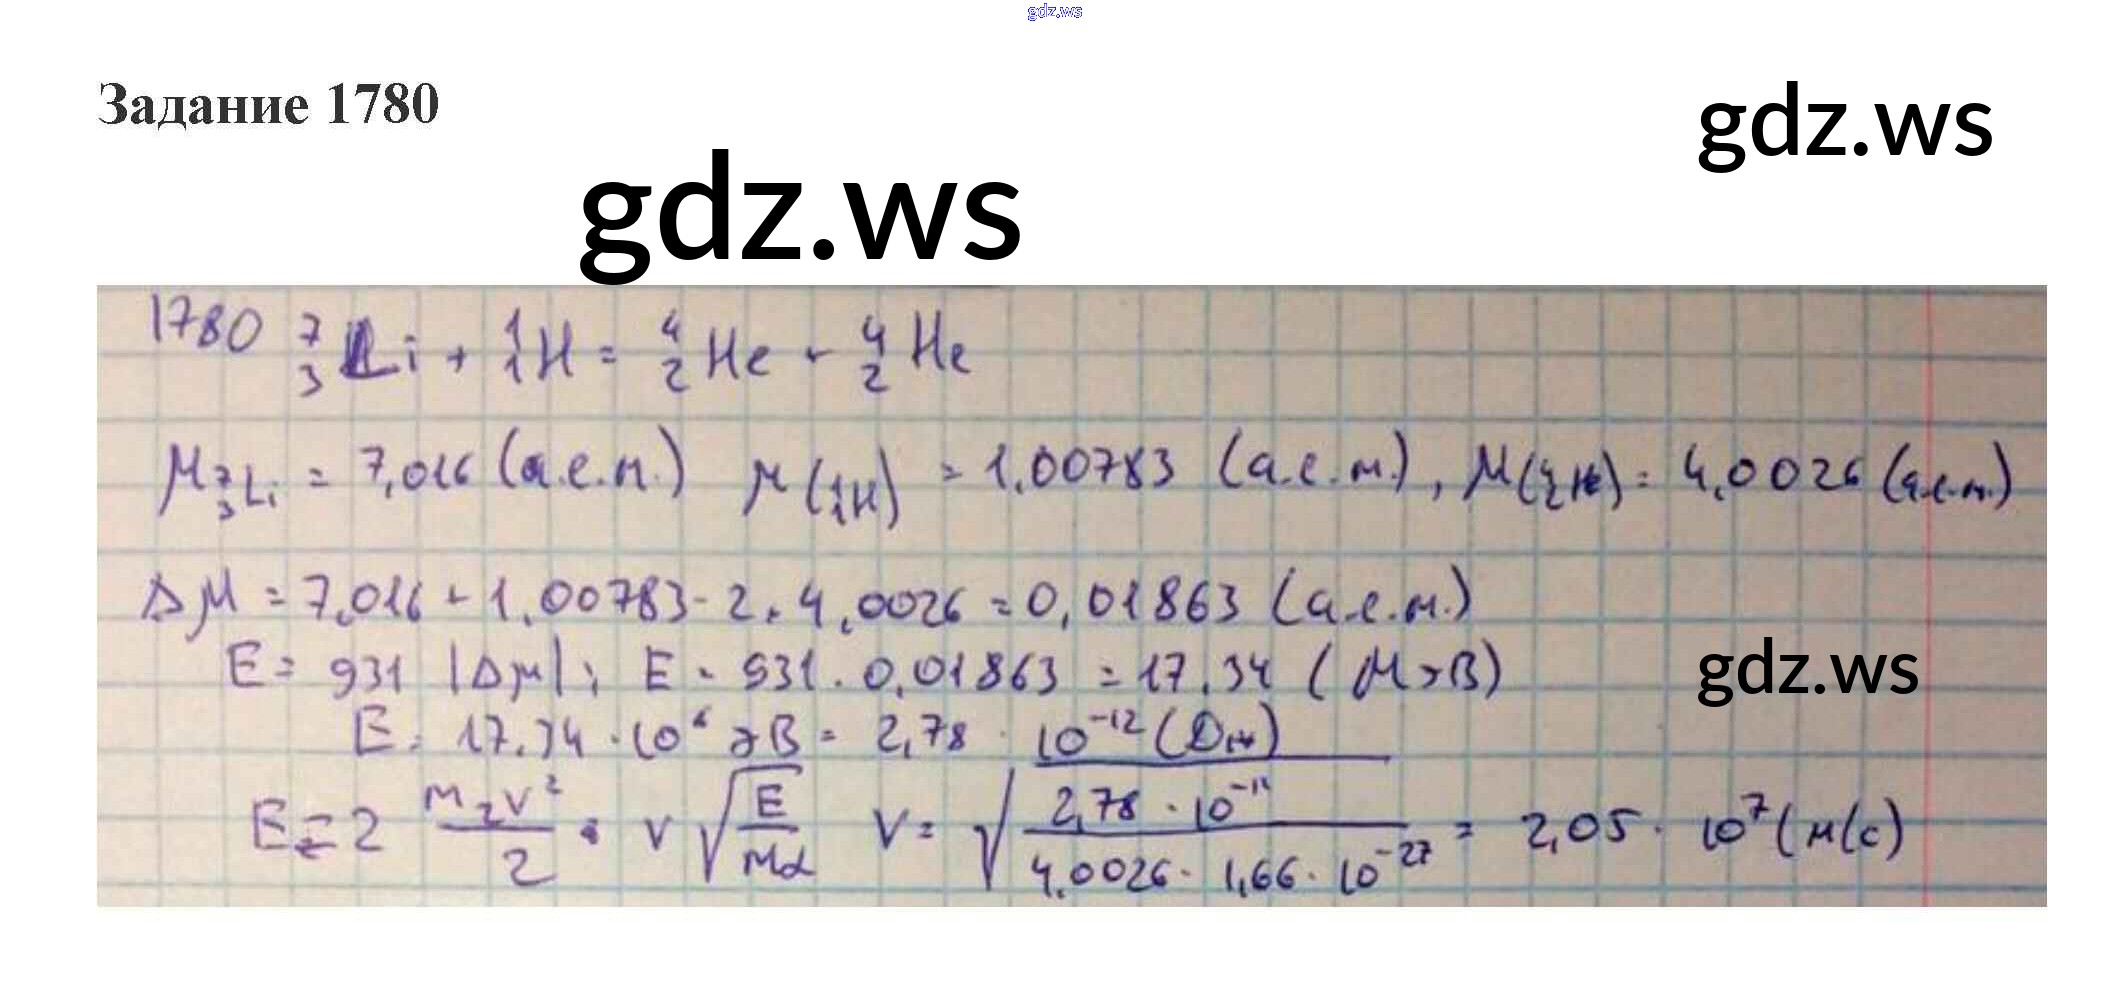 gdz.ws
Задание 1780
gdz.ws
gdz.ws
1780 ⁷₃Li + ¹₁H = ⁴₂He + ⁴₂He
M ⁷₃Li = 7,016 (а.е.м.) M (¹₁H) = 1,00783 (а.е.м.), M (⁴₂He) = 4,0026 (а.е.м.)
ΔM = 7,016 + 1,00783 - 2 · 4,0026 = 0,01863 (а.е.м.)
E = 931 |ΔM|; E = 931 · 0,01863 = 17,34 (МэВ)
gdz.ws
E = 17,34 · 10⁶ эВ = 2,78 · 10⁻¹² (Дж)
E = 2 M₂v²/2 · v √(E/Mα) v = √(2,78 · 10⁻¹²/4,0026 · 1,66 · 10⁻²⁷) = 2,05 · 10⁷ (м/с)